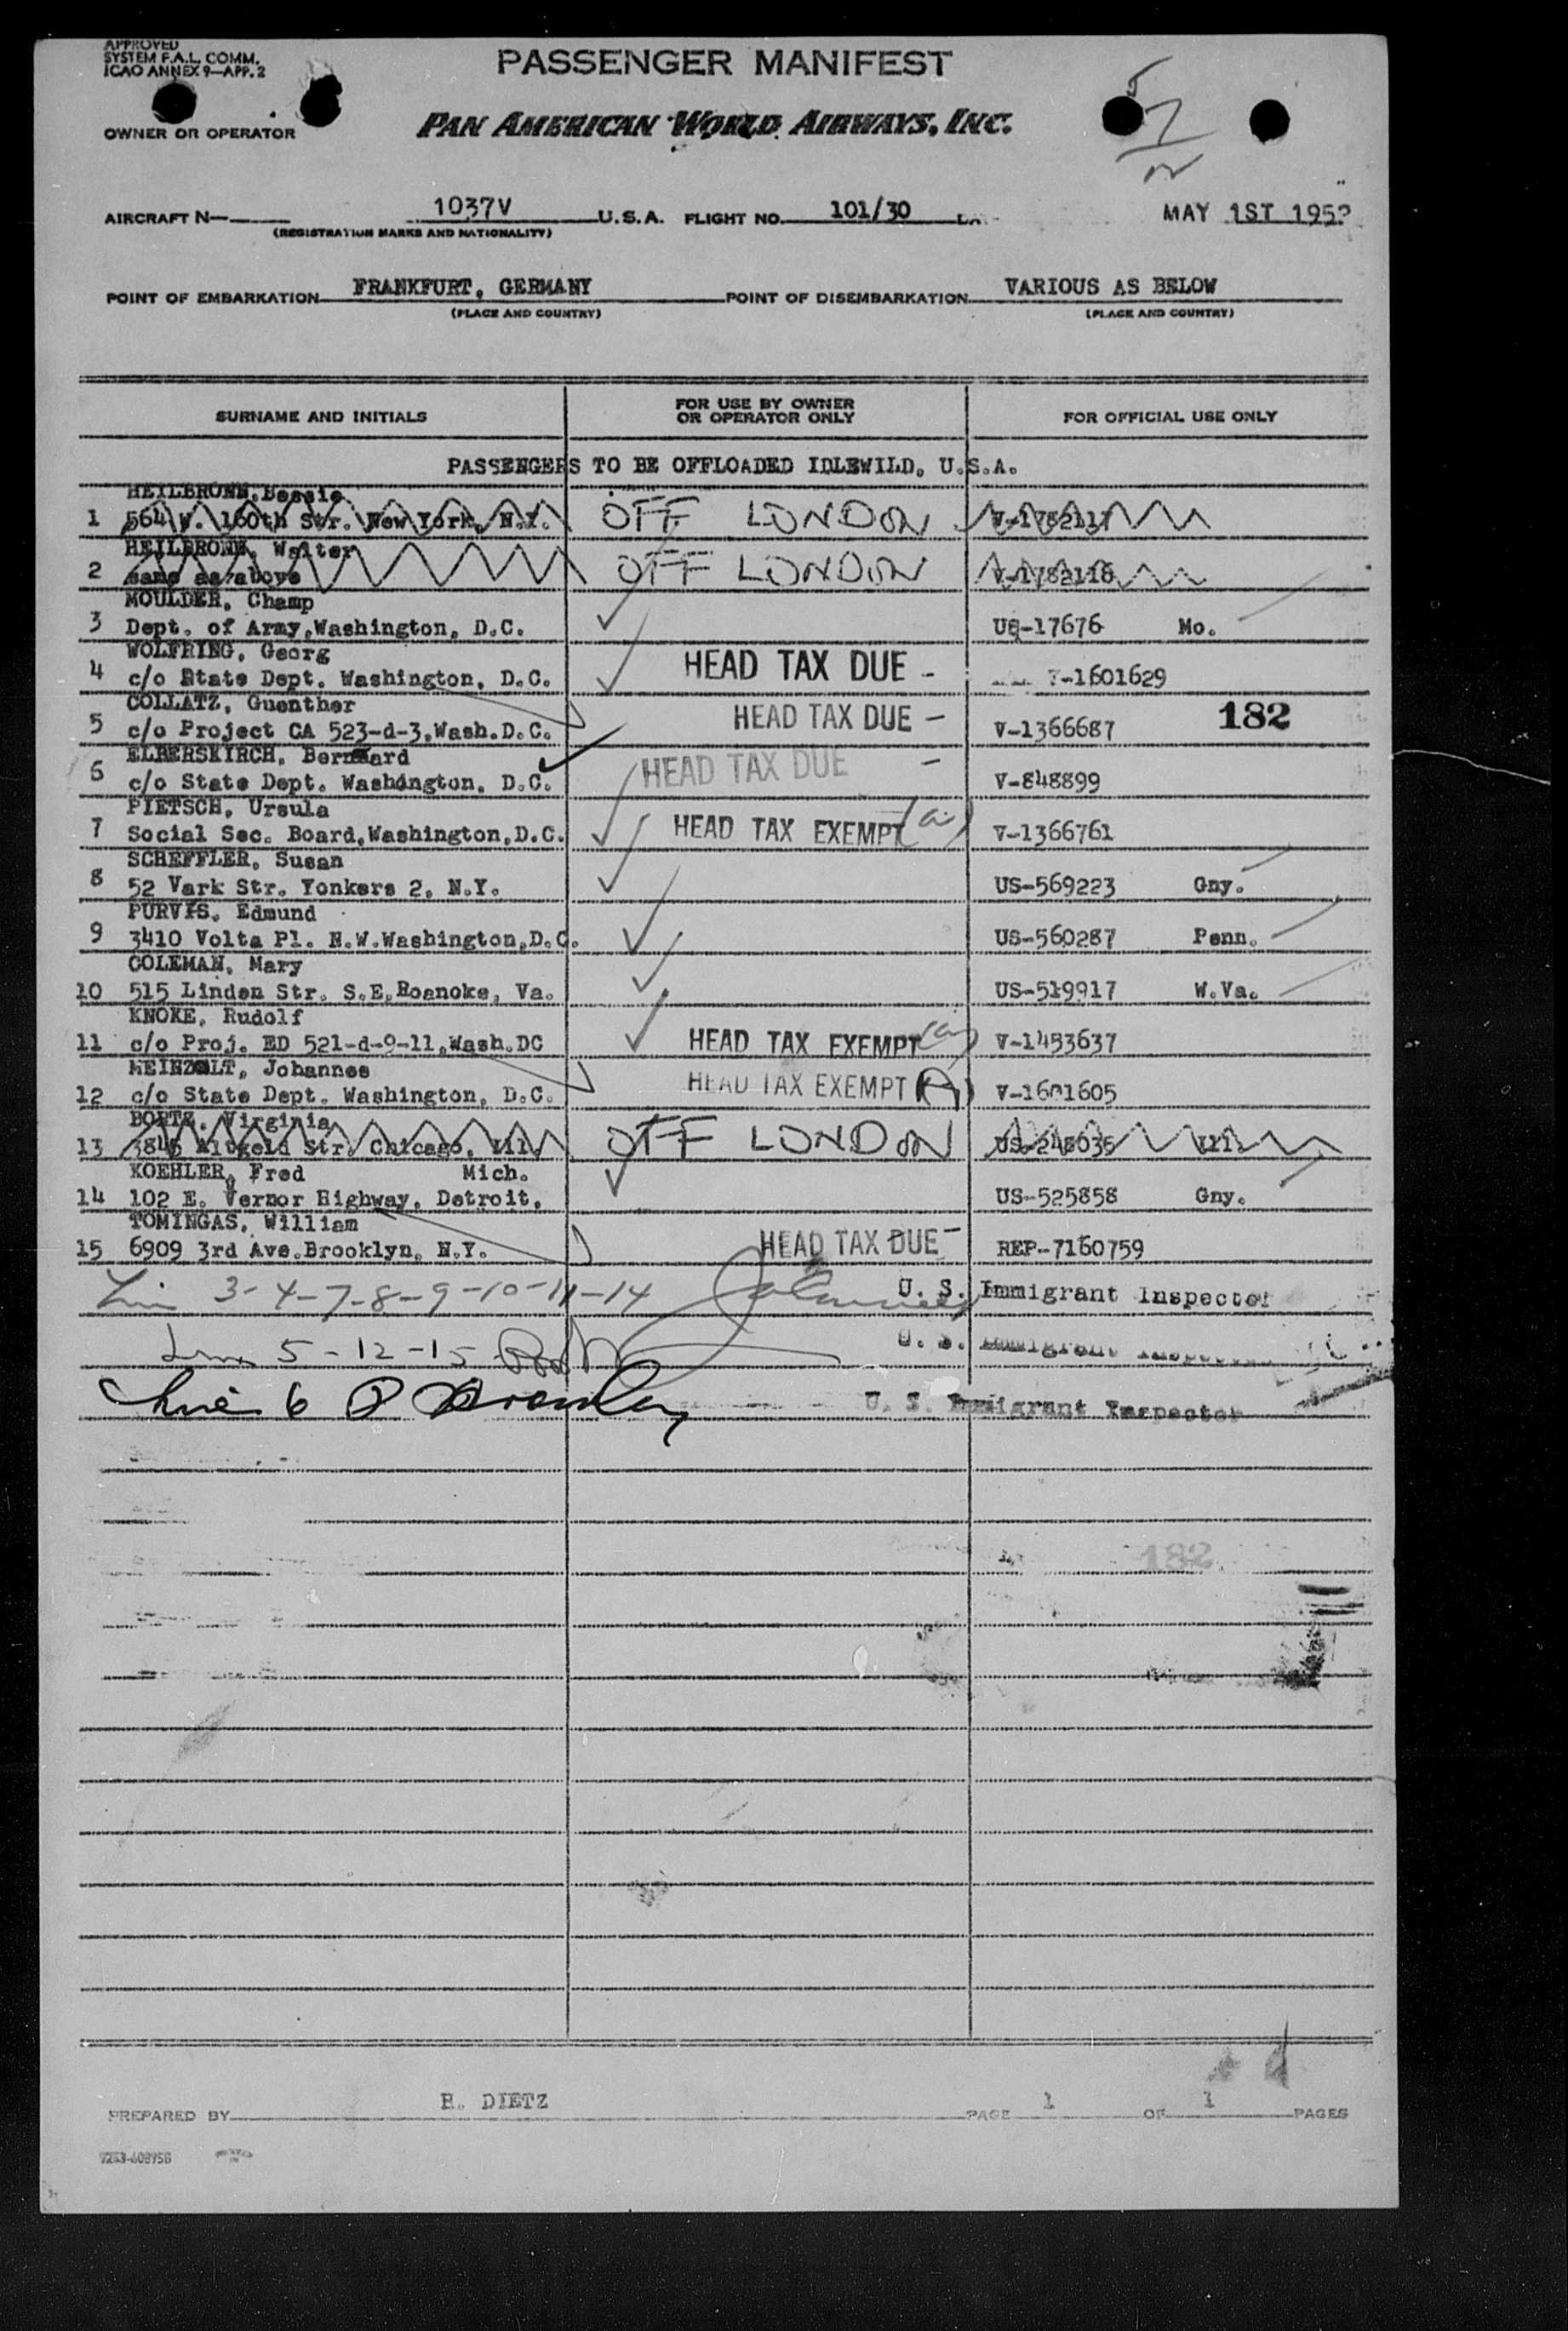 APPROVED
SYSTEM F.A.L. COMM.
ICAO ANNEX 9—APP. 2
PASSENGER MANIFEST
OWNER OR OPERATOR
PAN AMERICAN WORLD AIRWAYS, INC.
AIRCRAFT N— 1037V U.S.A. FLIGHT NO. 101/30 MAY 1ST 195
(REGISTRATION MARKS AND NATIONALITY)
POINT OF EMBARKATION FRANKFURT, GERMANY POINT OF DISEMBARKATION VARIOUS AS BELOW
(PLACE AND COUNTRY) (PLACE AND COUNTRY)
SURNAME AND INITIALS FOR USE BY OWNER OR OPERATOR ONLY FOR OFFICIAL USE ONLY
PASSENGERS TO BE OFFLOADED IDLEWILD, U.S.A.
HEILBRONN, Bessie
1 564 W. 160th Str. New York, N.Y. OFF LONDON V-1782117
HEILBRONN, Walter
2 same as above OFF LONDON V-1782116
MOULDER, Champ
3 Dept. of Army,Washington, D.C. US-17676 Mo.
WOLFRING, Georg
4 c/o State Dept. Washington, D.C. HEAD TAX DUE - V-1601629
COLLATZ, Guenther
5 c/o Project CA 523-d-3,Wash.D.C. HEAD TAX DUE - V-1366687 182
ELBERSKIRCH, Bernhard
6 c/o State Dept. Washington, D.C. HEAD TAX DUE - V-848899
PIETSCH, Ursula
7 Social Sec. Board,Washington,D.C. HEAD TAX EXEMPT (a) V-1366761
SCHEFFLER, Susan
8 52 Vark Str. Yonkers 2, N.Y. US-569223 Gny.
PURVIS, Edmund
9 3410 Volta Pl. N.W.Washington,D.C. US-560287 Penn.
COLEMAN, Mary
10 515 Linden Str. S.E,Roanoke, Va. US-519917 W.Va.
KNOKE, Rudolf
11 c/o Proj. ED 521-d-9-11,Wash.DC HEAD TAX EXEMPT (a) V-1453637
MEINZOLT, Johannes
12 c/o State Dept. Washington, D.C. HEAD TAX EXEMPT (A) V-1601605
BORTZ, Virginia
13 3845 Altgeld Str. Chicago, Ill. OFF LONDON US-248035 Ill.
KOEHLER, Fred Mich.
14 102 E. Vernor Highway, Detroit, US-525858 Gny.
TOMINGAS, William
15 6909 3rd Ave.Brooklyn, N.Y. HEAD TAX DUE - REP-7160759
Lin 3-4-7-8-9-10-11-14 U. S. Immigrant Inspector
Lin 5-12-15 U. S. Immigrant Inspector
Line 6 U. S. Immigrant Inspector
182
PREPARED BY H. DIETZ PAGE 1 OF 1 PAGES